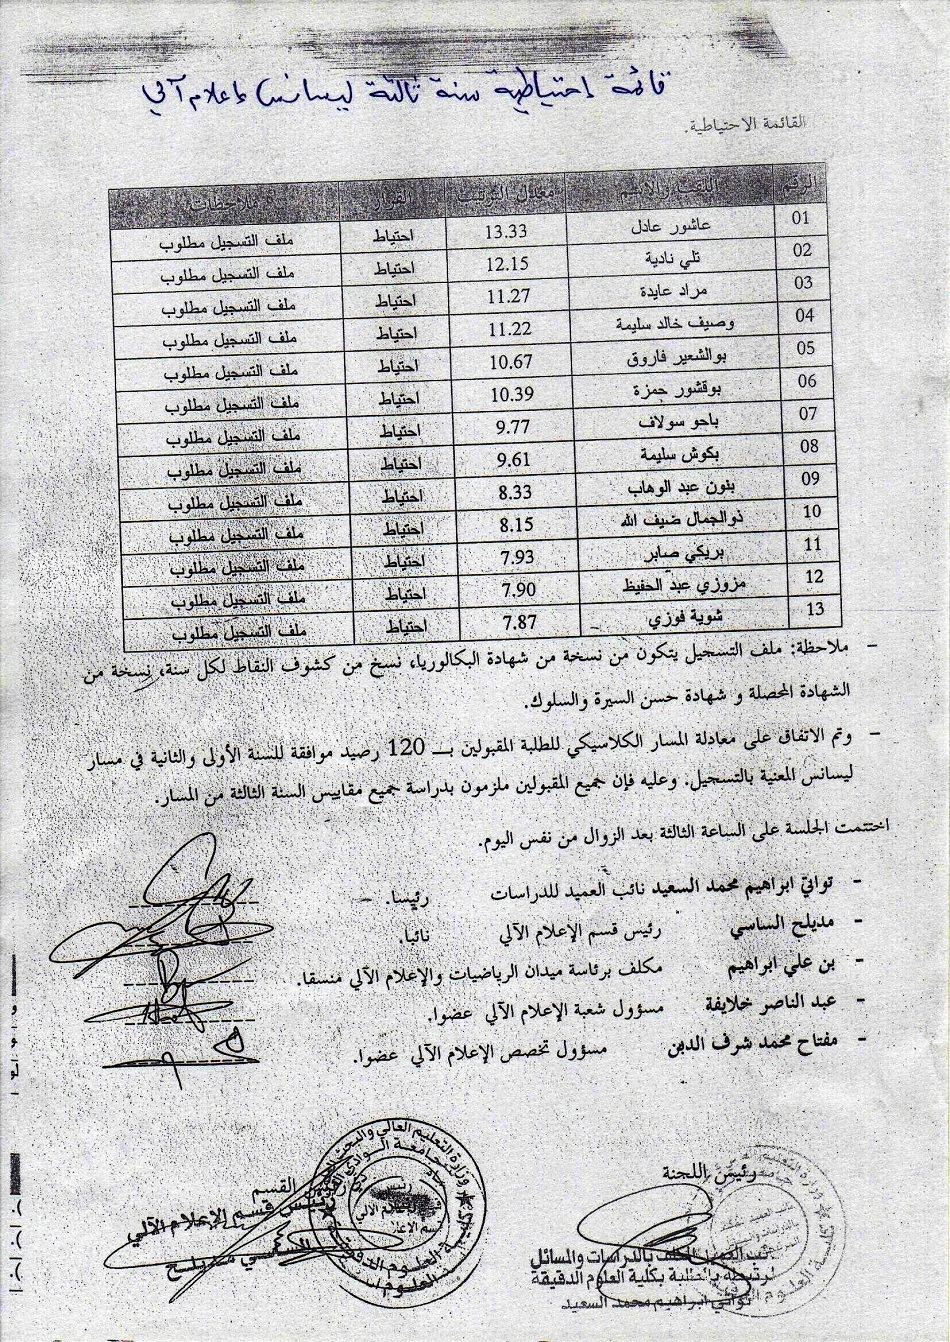 قائمة إحتياطية سنة ثالثة ليسانس إعلام آلي
القائمة الاحتياطية.
الرقم اللقب والاسم معدل الترتيب القرار ملاحظات
01 عاشور عادل 13.33 احتياط ملف التسجيل مطلوب
02 تلي نادية 12.15 احتياط ملف التسجيل مطلوب
03 مراد عايدة 11.27 احتياط ملف التسجيل مطلوب
04 وصيف خالد سليمة 11.22 احتياط ملف التسجيل مطلوب
05 بوالشعير فاروق 10.67 احتياط ملف التسجيل مطلوب
06 بوقشور حمزة 10.39 احتياط ملف التسجيل مطلوب
07 باحو سولاف 9.77 احتياط ملف التسجيل مطلوب
08 بكوش سليمة 9.61 احتياط ملف التسجيل مطلوب
09 بنون عبد الوهاب 8.33 احتياط ملف التسجيل مطلوب
10 ذوالجمال ضيف الله 8.15 احتياط ملف التسجيل مطلوب
11 بريكي صابر 7.93 احتياط ملف التسجيل مطلوب
12 مزوزي عبد الحفيظ 7.90 احتياط ملف التسجيل مطلوب
13 شوية فوزي 7.87 احتياط ملف التسجيل مطلوب
- ملاحظة: ملف التسجيل يتكون من نسخة من شهادة البكالوريا، نسخ من كشوف النقاط لكل سنة، نسخة من
الشهادة المحصلة و شهادة حسن السيرة والسلوك.
- وتم الاتفاق على معادلة المسار الكلاسيكي للطلبة المقبولين بـــ 120 رصيد موافقة للسنة الأولى والثانية في مسار
ليسانس المعنية بالتسجيل. وعليه فإن جميع المقبولين ملزمون بدراسة جميع مقاييس السنة الثالثة من المسار.
اختتمت الجلسة على الساعة الثالثة بعد الزوال من نفس اليوم.
- تواتي ابراهيم محمد السعيد نائب العميد للدراسات رئيسا.
- مديلح الساسي رئيس قسم الإعلام الآلي نائبا.
- بن علي ابراهيم مكلف برئاسة ميدان الرياضيات والإعلام الآلي منسقا.
- عبد الناصر خلايفة مسؤول شعبة الإعلام الآلي عضوا.
- مفتاح محمد شرف الدين مسؤول تخصص الإعلام الآلي عضوا.
رئيس اللجنة
القسم
رئيس قسم الإعلام الآلي
نائب العميد المكلف بالدراسات والمسائل
المرتبطة بالطلبة بكلية العلوم الدقيقة
تواتي ابراهيم محمد السعيد